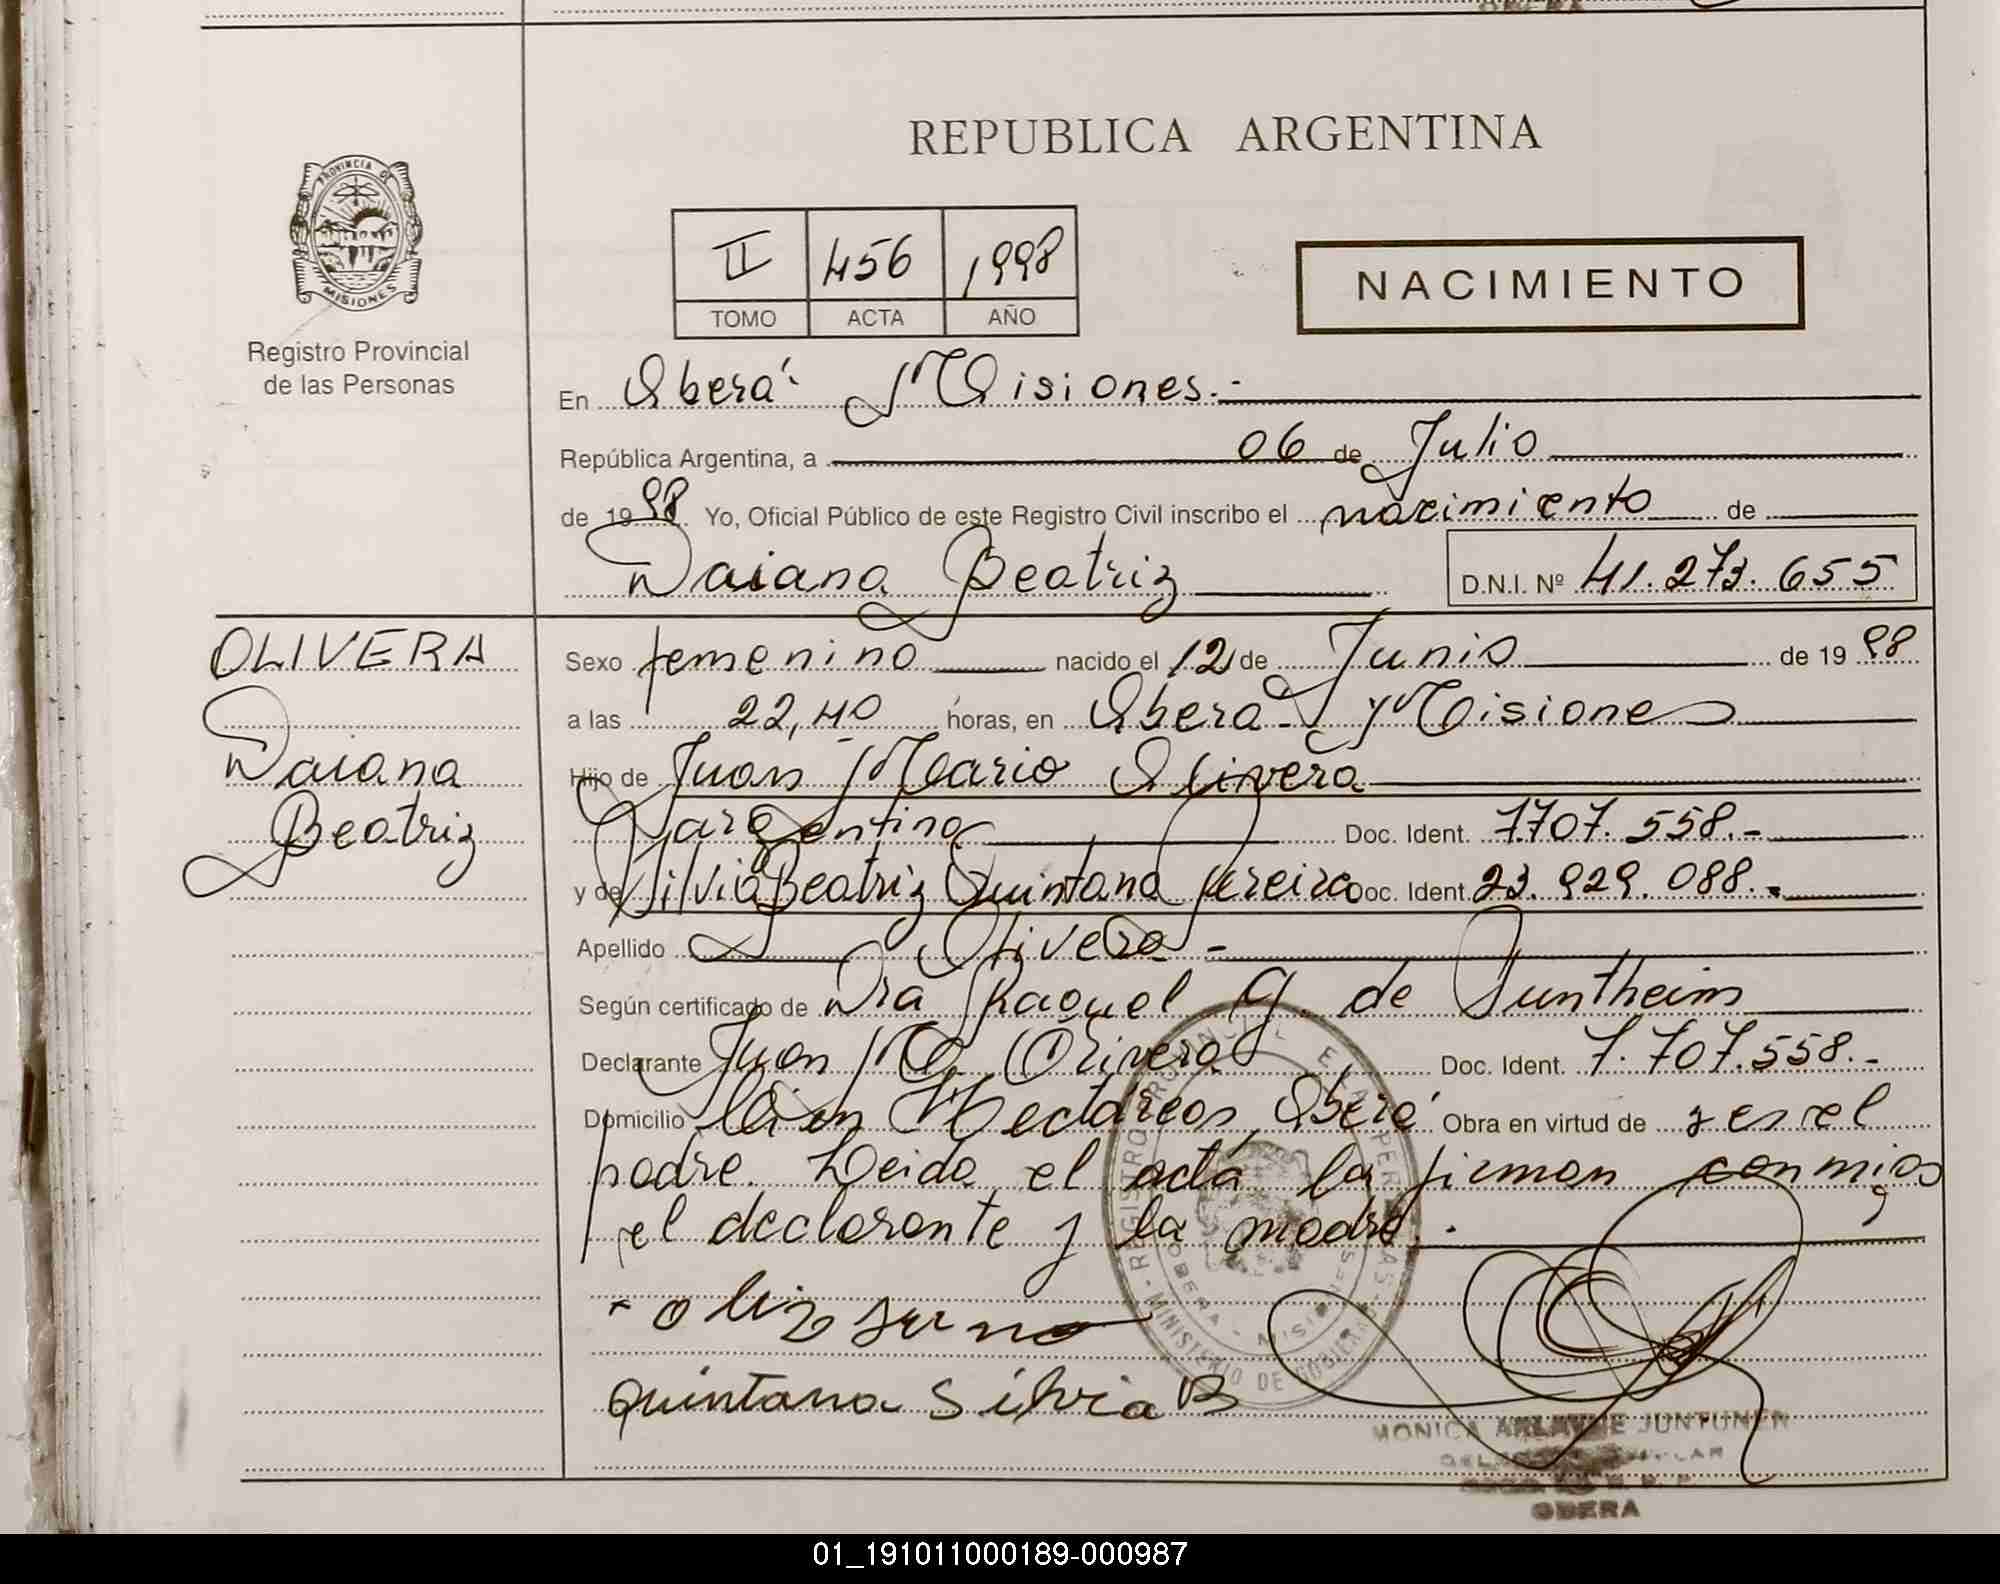 REPUBLICA ARGENTINA
PROVINCIA DE
MISIONES
Registro Provincial
de las Personas
II 456 1998
TOMO ACTA AÑO
NACIMIENTO
En Oberá Misiones.-
República Argentina, a 06 de Julio
de 1998 Yo, Oficial Público de este Registro Civil inscribo el nacimiento de
Daiana Beatriz D.N.I. Nº 41.273.655
OLIVERA
Daiana
Beatriz
Sexo femenino nacido el 12 de Junio de 1998
a las 22,40 horas, en Oberá - Misiones
Hijo de Juan Mario Olivera
argentino Doc. Ident. 7.707.558.-
y de Silvia Beatriz Quintana Pereira Doc. Ident. 23.929.088.-
Apellido Olivera -
Según certificado de Dra Raquel G. de Suntheim
Declarante Juan M. Olivera Doc. Ident. 7.707.558.-
Domicilio Cien Hectáreas, Oberá Obra en virtud de ser el
padre. Leida el acta la firman conmigo
el declarante y la madre.-
quintana Silvia B
REGISTRO PROVINCIAL DE LAS PERSONAS - MINISTERIO DE GOBIERNO
OBERA - MISIONES
MONICA ARLAYNE JUNTUNEN
OBERA
01_191011000189-000987